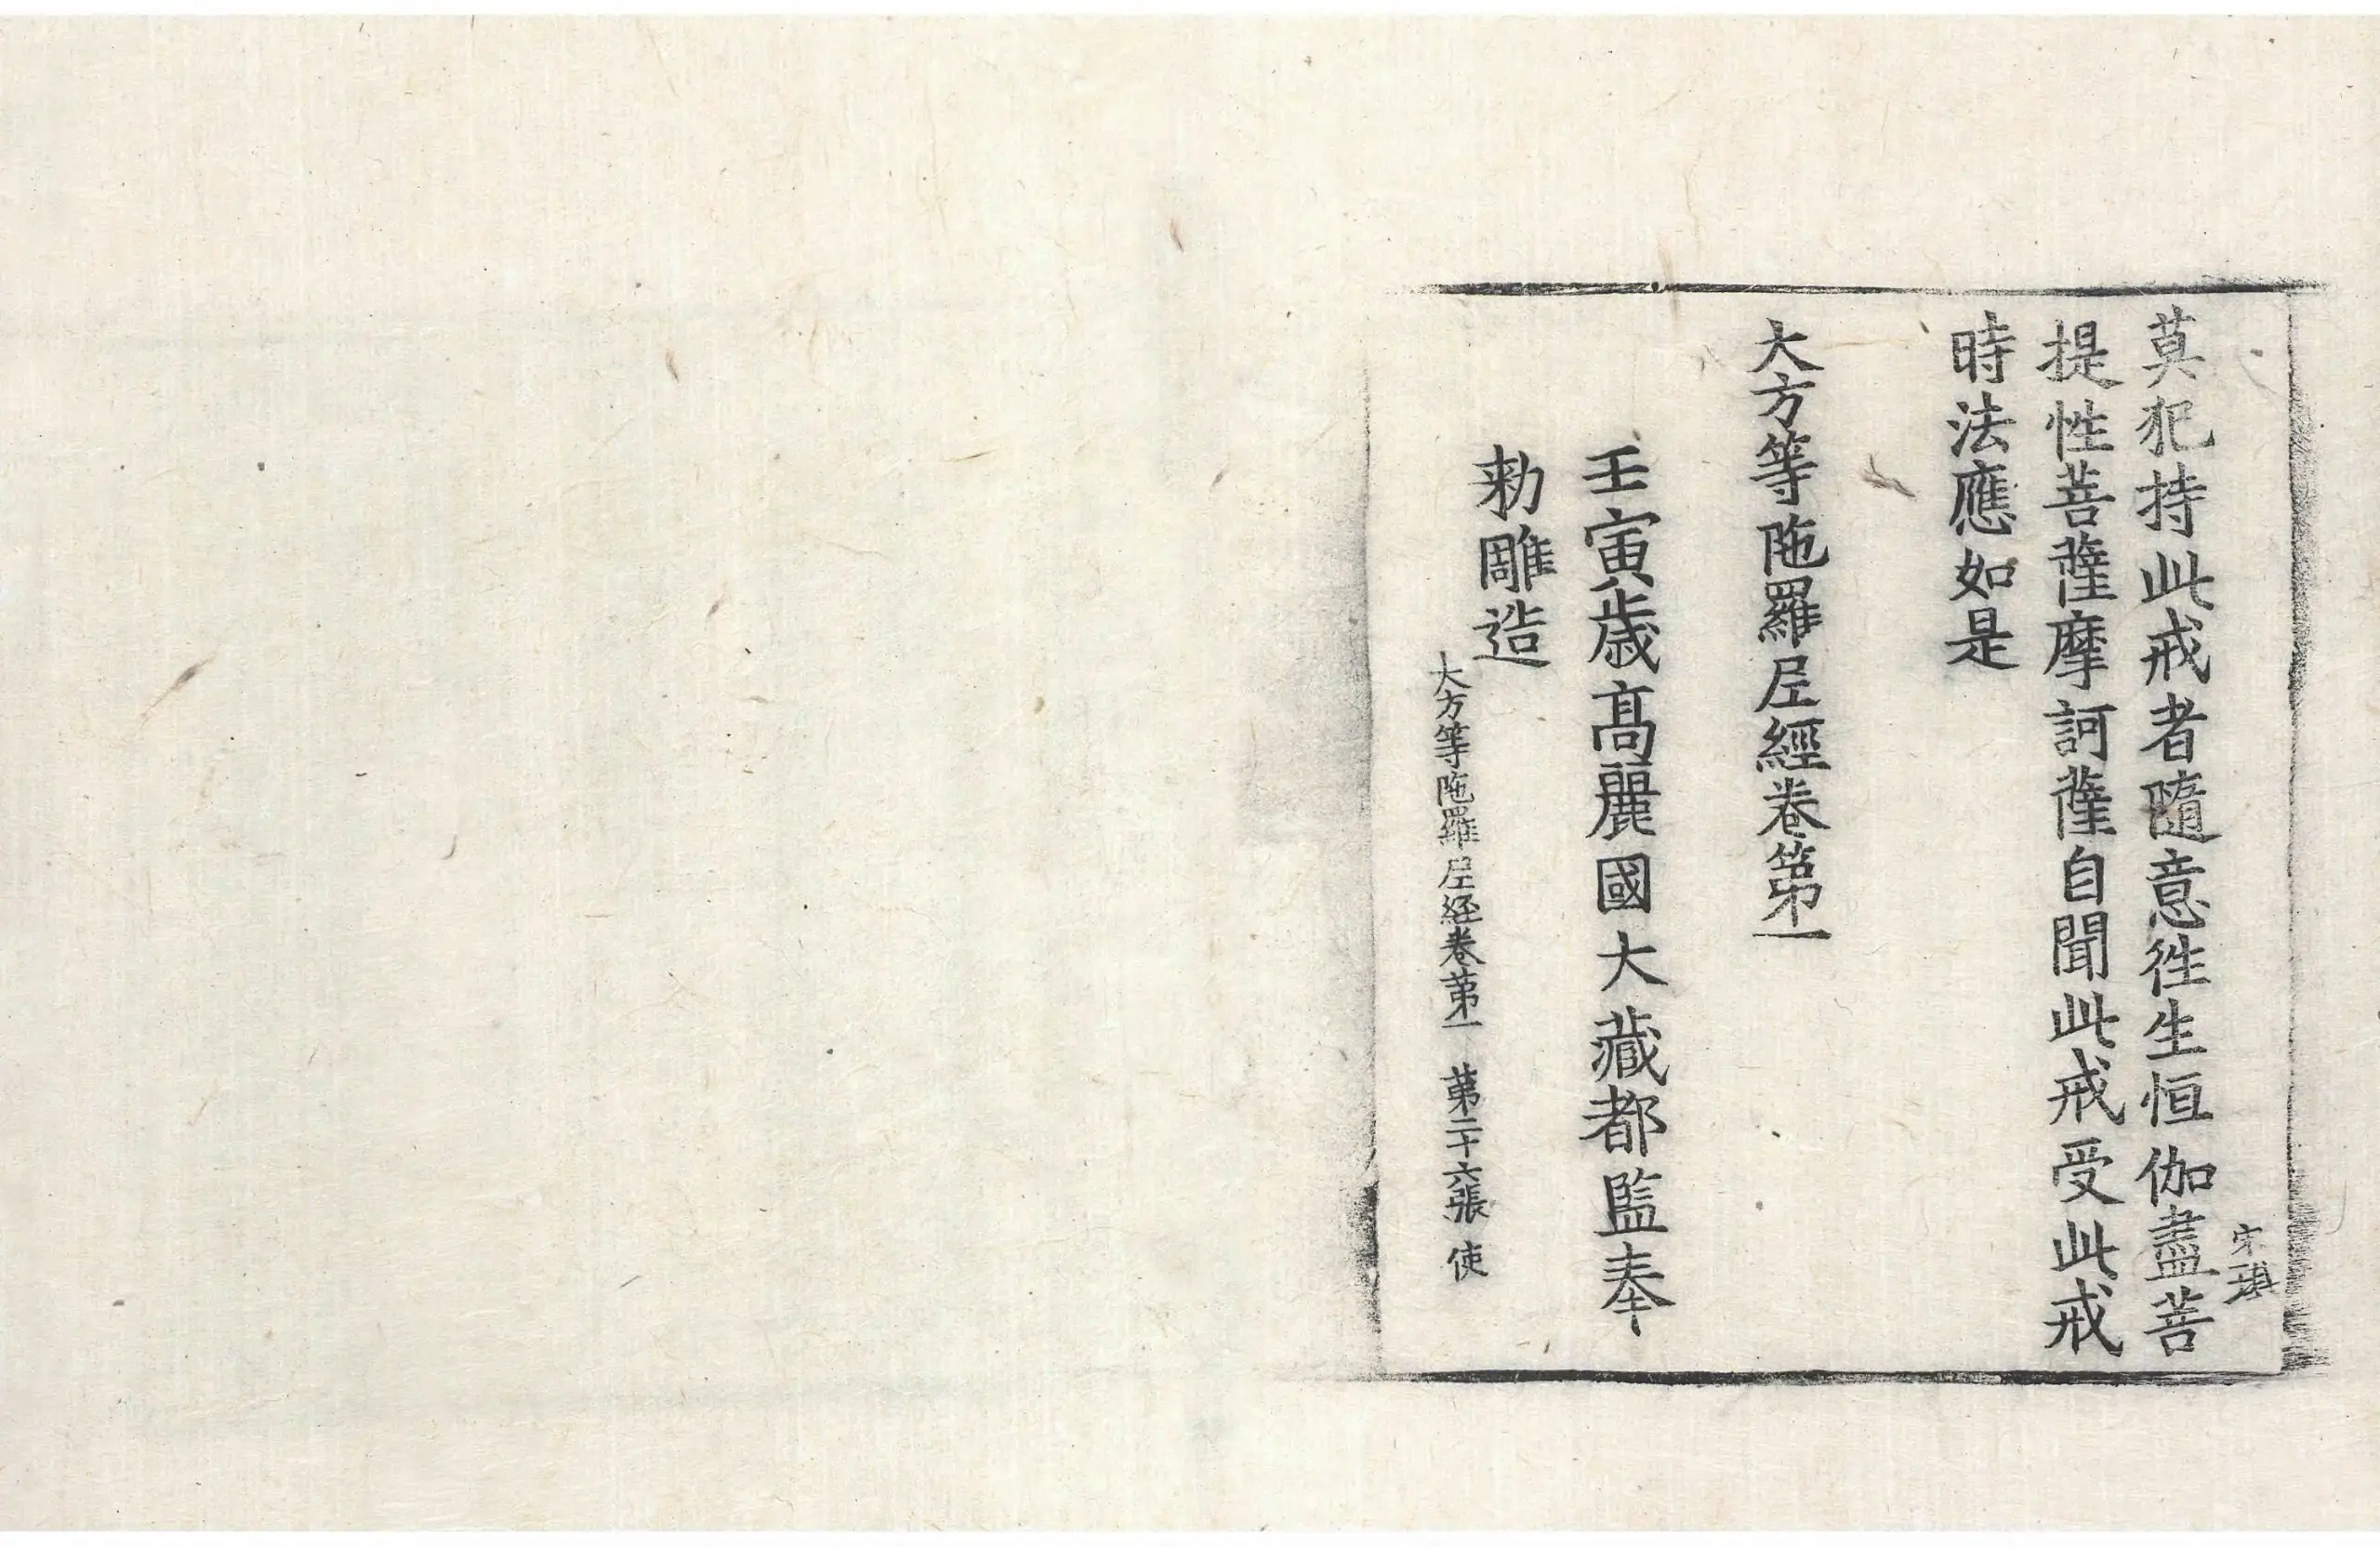 莫犯持此戒者隨意徃生恒伽盡菩
提性菩薩摩訶薩自聞此戒受此戒
時法應如是
大方等陁羅𡰱經卷第一
壬寅歲高麗國大藏都監奉
勑雕造
大方等陁羅𡰱経卷苐一 苐二十六張 使